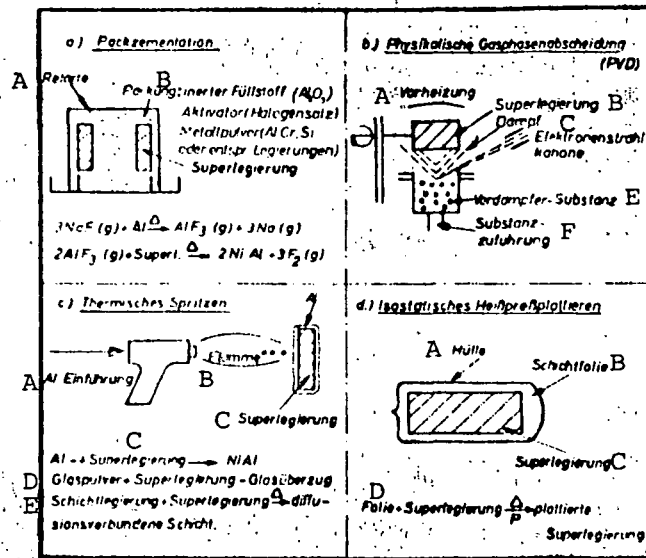 a) Packzementation
A Retorte B
Packung: inerter Füllstoff (Al₂O₃)
Aktivator (Halogensalz)
Metallpulver (Al Cr, Si
oder entspr. Legierungen)
Superlegierung
3NaF (g) + Al →Δ AlF₃ (g) + 3Na (g)
2AlF₃ (g) + Superl. →Δ 2NiAl + 3F₂ (g)
b.) Physikalische Gasphasenabscheidung
(PVD)
A Vorheizung
Superlegierung B
Dampf C
Elektronenstrahl
kanone
Verdampfer-Substanz E
Substanz-
zuführung
F
c) Thermisches Spritzen
Al
Flamme
A Al Einführung B
C Superlegierung
C
Al + Superlegierung → NiAl
D Glaspulver + Superlegierung – Glasüberzug
E Schichtlegierung + Superlegierung →Δ diffu-
sionsverbundene Schicht.
d.) Isostatisches Heißpreßplattieren
A Hülle
Schichtfolie B
Superlegierung C
D
Folie + Superlegierung →Δ P plattierte
Superlegierung